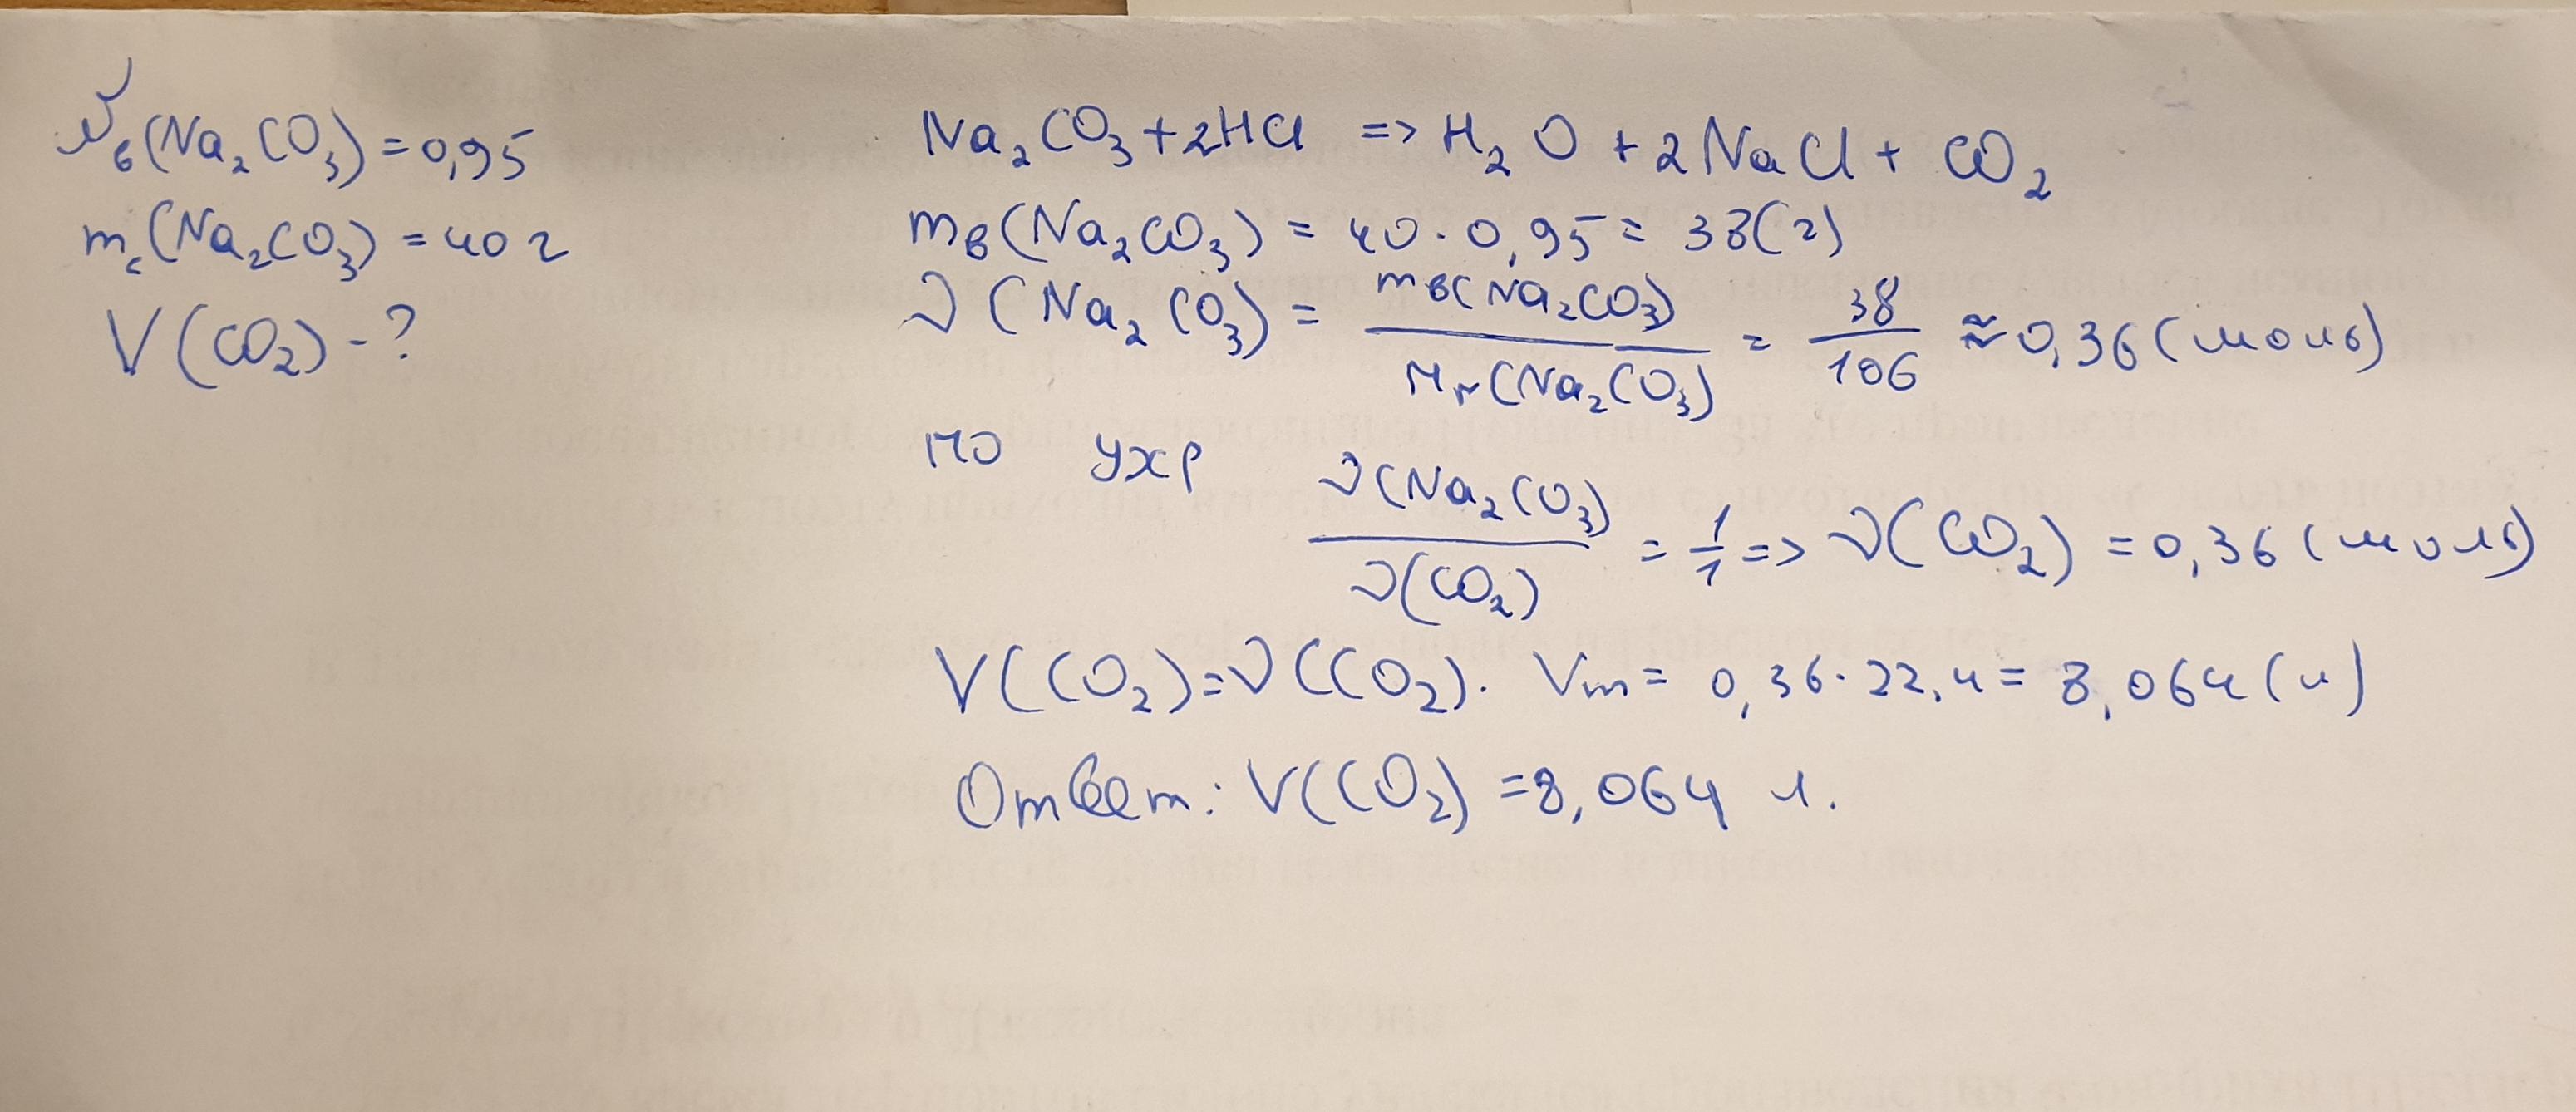 ω_в(Na₂CO₃) = 0,95
m_с(Na₂CO₃) = 40 г
V(CO₂) - ?
Na₂CO₃ + 2HCl => H₂O + 2NaCl + CO₂
m_в(Na₂CO₃) = 40 · 0,95 = 38(г)
ν(Na₂CO₃) = m_в(Na₂CO₃) / M_r(Na₂CO₃) = 38/106 ≈ 0,36 (моль)
по ухр ν(Na₂CO₃) / ν(CO₂) = 1/1 => ν(CO₂) = 0,36 (моль)
V(CO₂) = ν(CO₂) · Vm = 0,36 · 22,4 = 8,064 (л)
Ответ: V(CO₂) = 8,064 л.